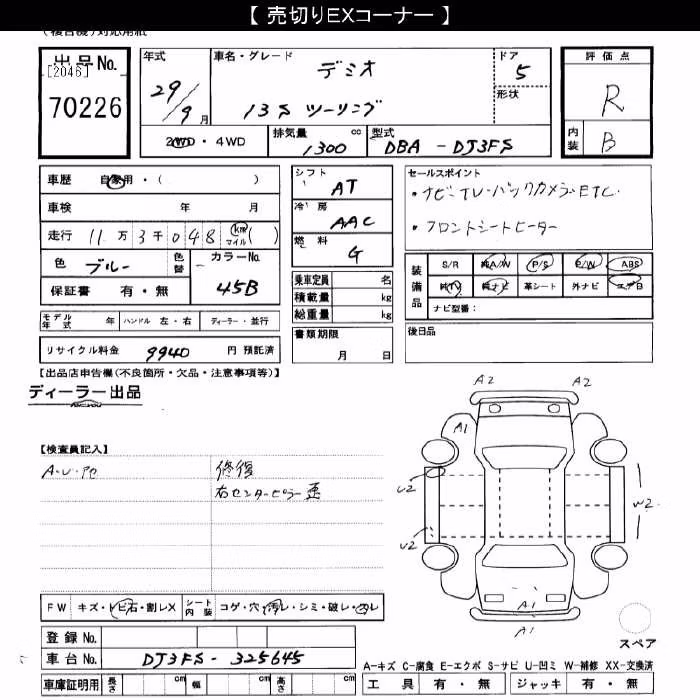 【 売切りEXコーナー 】
(複合機)対応用紙
出品No.
[2046]
70226
年式 29/9月
車名・グレード
デミオ
13S ツーリング
ドア 5
形状
評価点
R
内装 B
2WD・4WD
排気量 1300 cc
型式 DBA - DJ3FS
車歴 自家用・( )
車検 年 月
走行 11万3千048 km マイル( )
色 ブルー 色替
カラーNo. 45B
保証書 有・無
シフト AT
冷房 AAC
燃料 G
乗車定員 名
積載量 kg
総重量 kg
セールスポイント
・ナビ-TV-バックカメラ-ETC
・フロントシートヒーター
装備品
S/R 純A/W P/S P/W ABS
純TV 純ナビ 革シート 外ナビ エアB
ナビ型番:
モデル年式 年 ハンドル 左・右 ディーラー・並行
リサイクル料金 9940 円 預託済
書類期限 月 日
後日品
【出品店申告欄(不良箇所・欠品・注意事項等)】
ディーラー出品
【検査員記入】
A・U・他
修復
右センターピラー 歪
A2
A2
A1
U2
U2
W2
A1
A1
FW キズ・トビ石・割レX
シート内装 コゲ・穴・汚レ・シミ・破レ・スレ
登録No.
車台No. DJ3FS - 325645
車庫証明用 長さ cm 幅 cm 高さ cm
スペア
A-キズ C-腐食 E-エクボ S-サビ U-凹ミ W-補修 XX-交換済
工具 有・無 ジャッキ 有・無